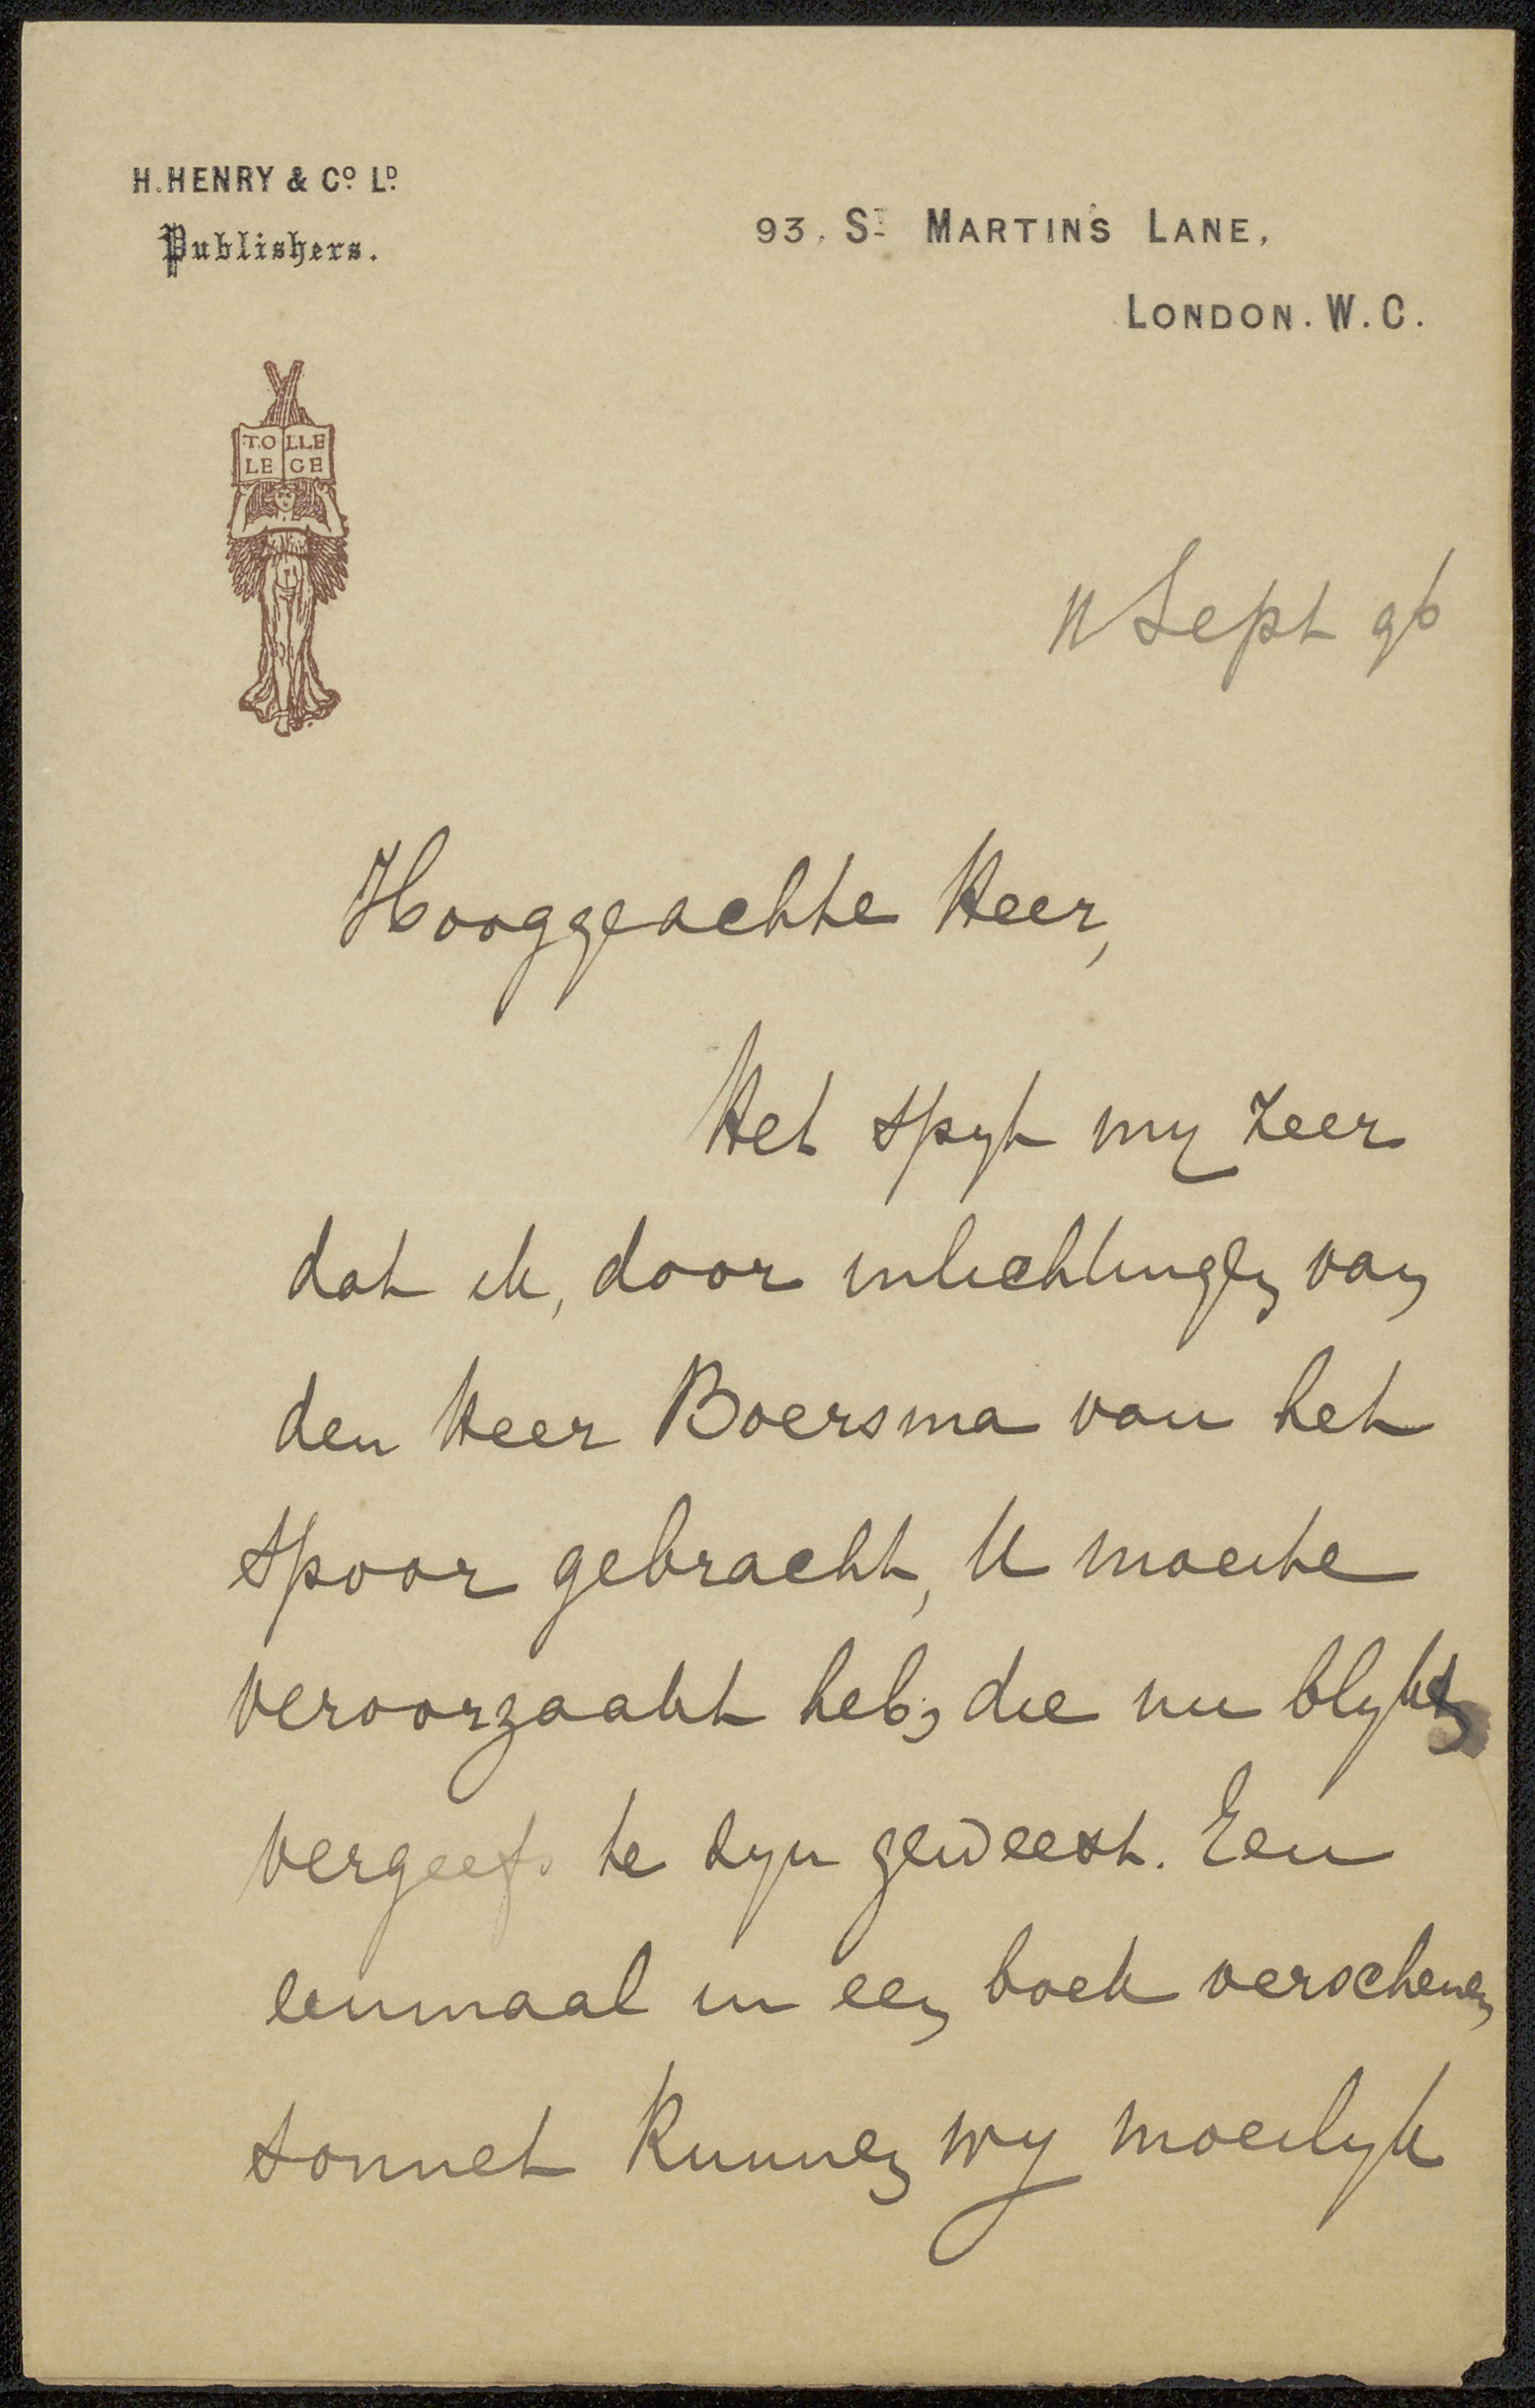 H. HENRY & Cº Lᴰ.
Publishers.
93, Sᵀ MARTIN'S LANE,
LONDON. W. C.
TOLLE
LEGE
11 Sept 96
Hooggeachte Heer,
Het spyt my zeer
dat ik, door inlichtingen van
den Heer Boersma van het
spoor gebracht, U moeite
veroorzaakt heb, die nu blykt
vergeefs te zyn geweest. Een
eenmaal in een boek verschenen
sonnet kunnen wy moeilyk